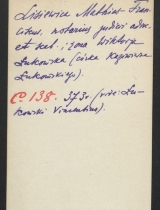 Lisiewicz Mathias Fran-
ciscus, notarius judicii advo.
et scab.; żona Wiktorja
Łukowska (córka Kazimierza
Łukowskiego).
C. 138. 373v (vide: Łu-
kowski Vincentius).